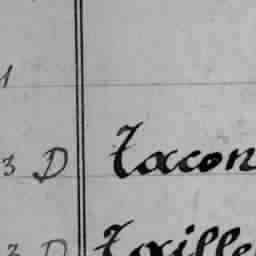 1
3 D Tacon
3 D Taille